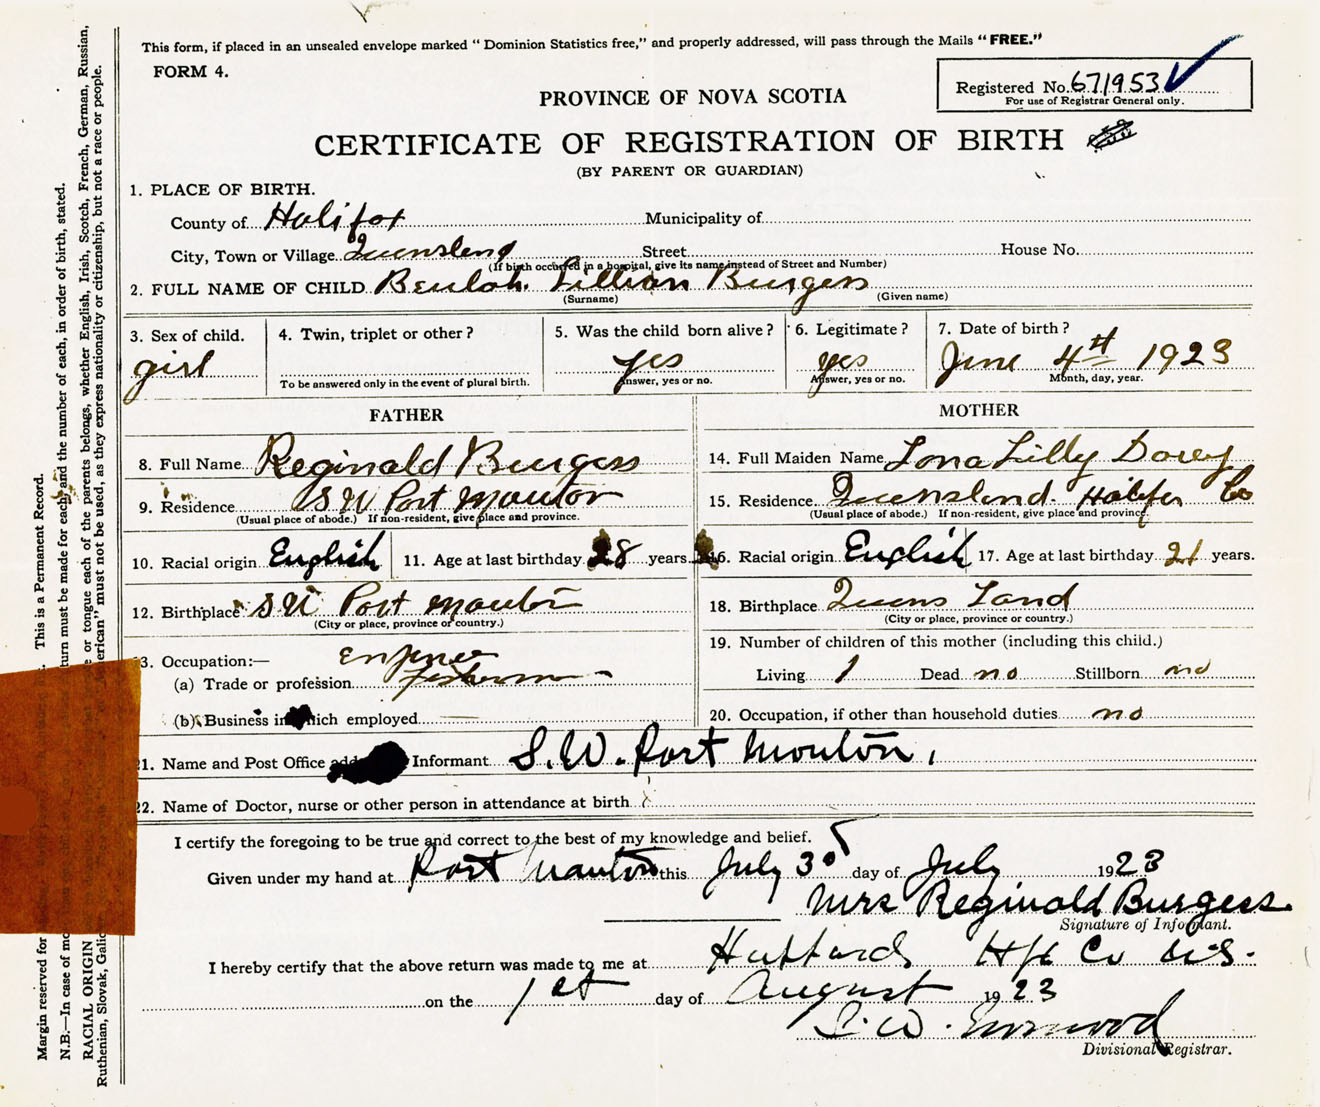 This form, if placed in an unsealed envelope marked "Dominion Statistics free," and properly addressed, will pass through the Mails "FREE."
FORM 4.
Registered No. 671953
For use of Registrar General only.
PROVINCE OF NOVA SCOTIA
CERTIFICATE OF REGISTRATION OF BIRTH
(BY PARENT OR GUARDIAN)
1. PLACE OF BIRTH.
County of Halifax Municipality of
City, Town or Village Queensland Street House No.
(If birth occurred in a hospital, give its name instead of Street and Number)
2. FULL NAME OF CHILD Beulah Lillian Burgess
(Surname) (Given name)
3. Sex of child. 4. Twin, triplet or other? 5. Was the child born alive? 6. Legitimate? 7. Date of birth?
girl yes yes June 4th 1923
To be answered only in the event of plural birth. Answer, yes or no. Answer, yes or no. Month, day, year.
FATHER
8. Full Name Reginald Burgess
9. Residence S W Port Mouton
(Usual place of abode.) If non-resident, give place and province.
10. Racial origin English 11. Age at last birthday 28 years.
12. Birthplace S W Port Mouton
(City or place, province or country.)
13. Occupation:—
(a) Trade or profession Fisherman
(b) Business in which employed
MOTHER
14. Full Maiden Name Lona Lilly Dorey
15. Residence Queensland. Halifax Co
(Usual place of abode.) If non-resident, give place and province.
16. Racial origin English 17. Age at last birthday 21 years.
18. Birthplace Queens Land
(City or place, province or country.)
19. Number of children of this mother (including this child.)
Living 1 Dead no Stillborn no
20. Occupation, if other than household duties no
21. Name and Post Office address Informant S. W. Port Mouton,
22. Name of Doctor, nurse or other person in attendance at birth
I certify the foregoing to be true and correct to the best of my knowledge and belief.
Given under my hand at Port Mouton this July 30 day of July 1923
Mrs Reginald Burgess
Signature of Informant.
I hereby certify that the above return was made to me at Hubbards Hfx Co N.S.
on the 1st day of August 1923
Divisional Registrar.
Margin reserved for This is a Permanent Record.
N.B.—In case of return must be made for each, and the number of each, in order of birth, stated.
RACIAL ORIGIN or tongue each of the parents belongs, whether English, Irish, Scotch, French, German, Russian,
Ruthenian, Slovak, must not be used, as they express nationality or citizenship, but not a race or people.